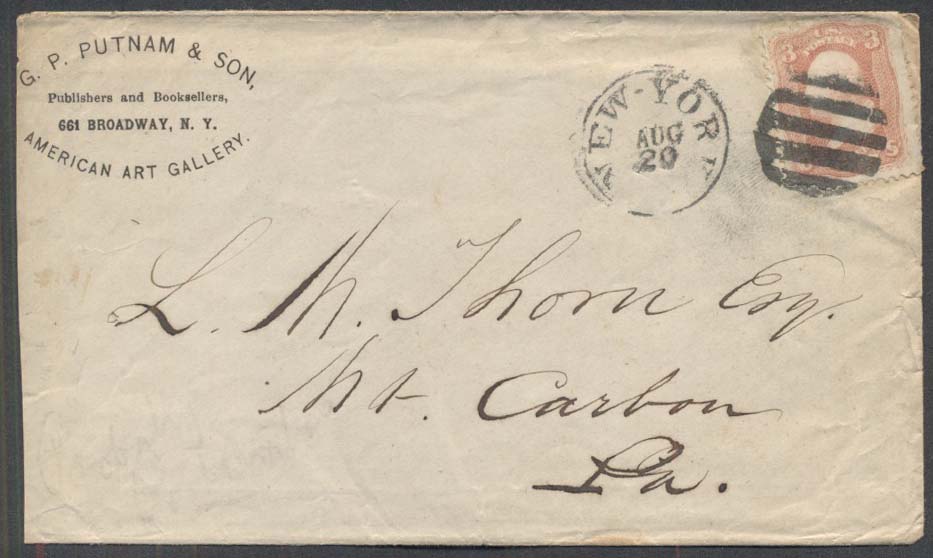 G. P. PUTNAM & SON,
Publishers and Booksellers,
661 BROADWAY, N. Y.
AMERICAN ART GALLERY.
NEW-YORK
AUG
20
3 U.S. 3
POSTAGE
L. M. Thorn Esq.
Mt. Carbon
Pa.